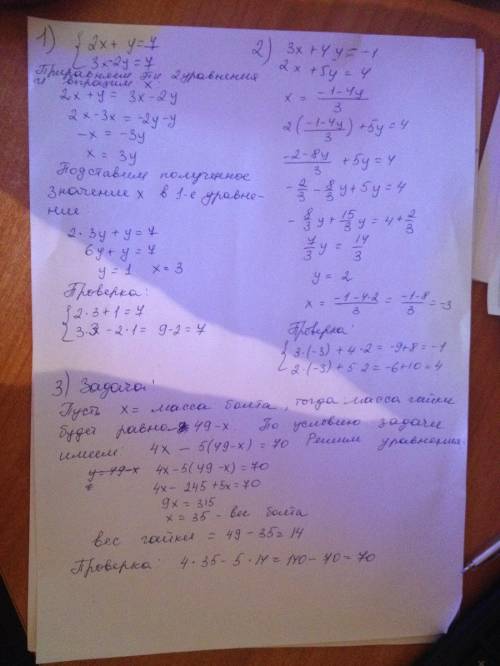 1) { 2x + y = 7
3x - 2y = 7
Приравняем эти 2 уравнения
и выразим x
2x + y = 3x - 2y
2x - 3x = -2y - y
-x = -3y
x = 3y
Подставим полученное
значение x в 1-е уравне-
ние
2 · 3y + y = 7
6y + y = 7
y = 1 x = 3
Проверка:
{ 2 · 3 + 1 = 7
3·3 - 2·1 = 9-2 = 7
2) 3x + 4y = -1
2x + 5y = 4
x = \frac{-1-4y}{3}
2(\frac{-1-4y}{3}) + 5y = 4
\frac{-2-8y}{3} + 5y = 4
-\frac{2}{3} - \frac{8}{3}y + 5y = 4
-\frac{8}{3}y + \frac{15}{3}y = 4 + \frac{2}{3}
\frac{7}{3}y = \frac{14}{3}
y = 2
x = \frac{-1-4·2}{3} = \frac{-1-8}{3} = -3
Проверка:
{ 3·(-3) + 4·2 = -9+8 = -1
2·(-3) + 5·2 = -6+10 = 4
3) Задача:
Пусть x = масса болта, тогда масса гайки
будет равна 49-x. По условию задачи
имеем 4x - 5(49-x) = 70 Решим уравнение:
y = 49-x 4x - 5(49-x) = 70
4x - 245 + 5x = 70
9x = 315
x = 35 - вес болта
вес гайки = 49 - 35 = 14
Проверка: 4·35 - 5·14 = 140 - 70 = 70